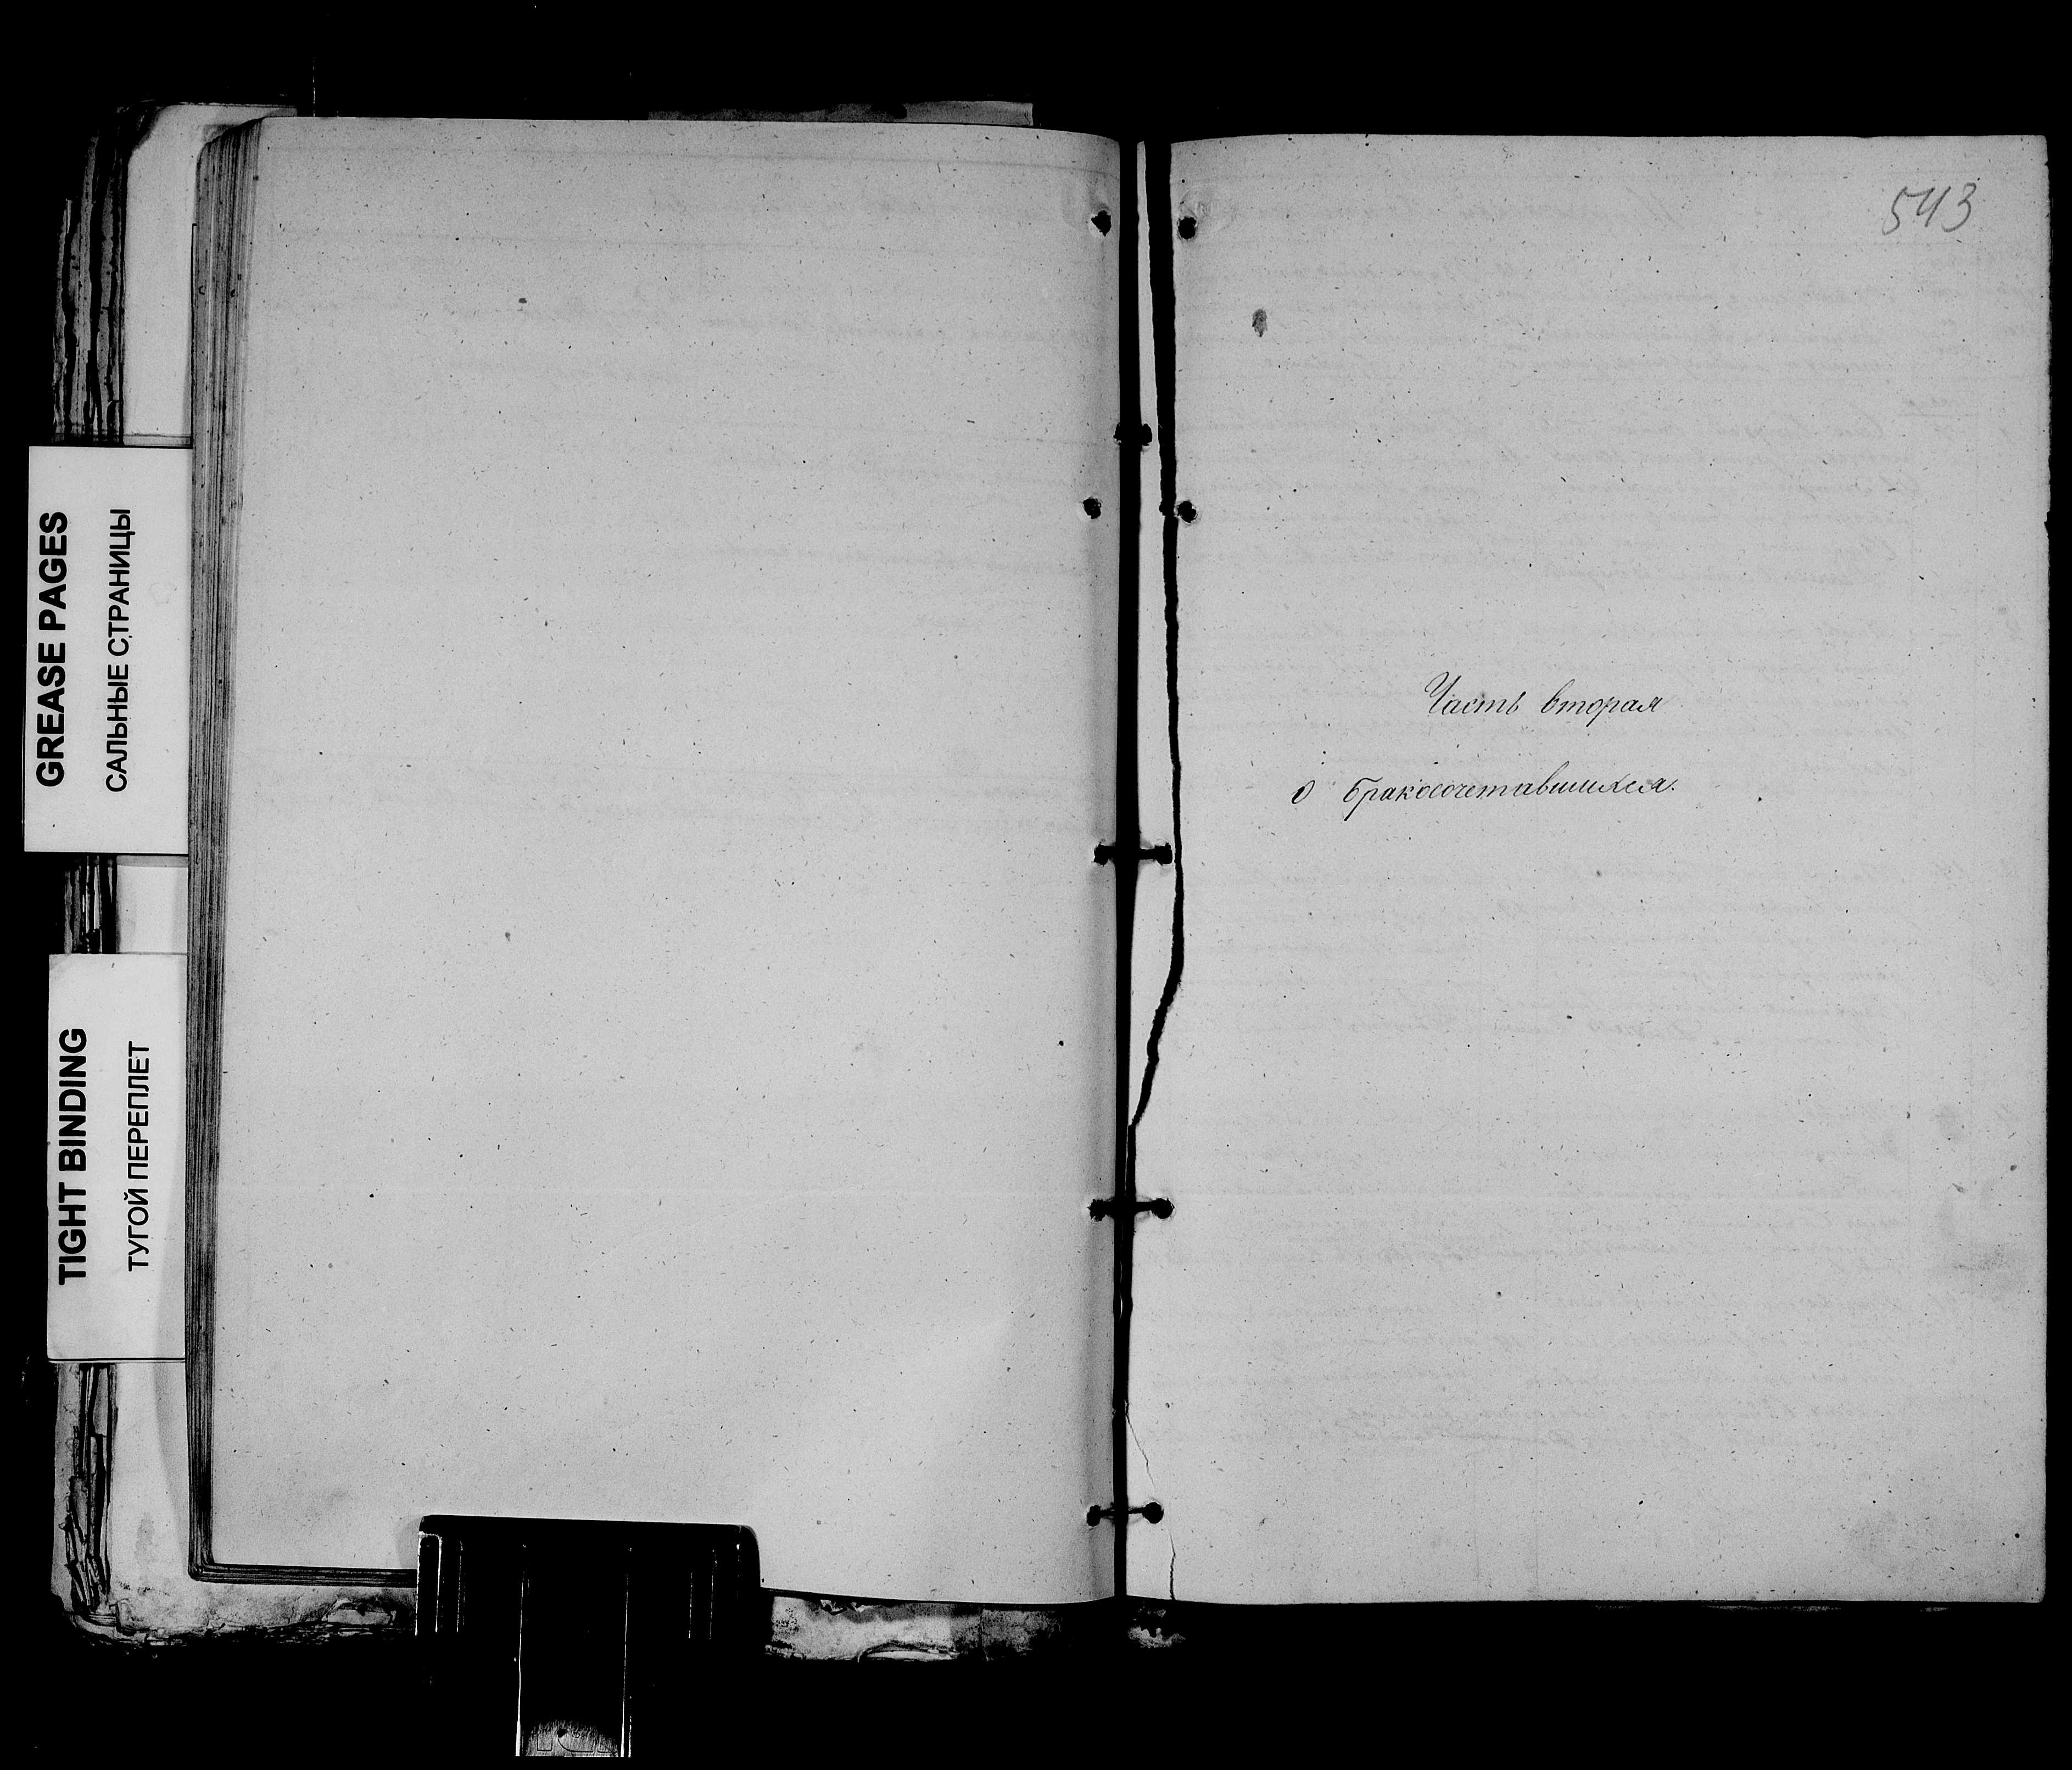 GREASE PAGES
САЛЬНЫЕ СТРАНИЦЫ
TIGHT BINDING
ТУГОЙ ПЕРЕПЛЕТ
543
Часть вторая
о бракосочетавшихся.